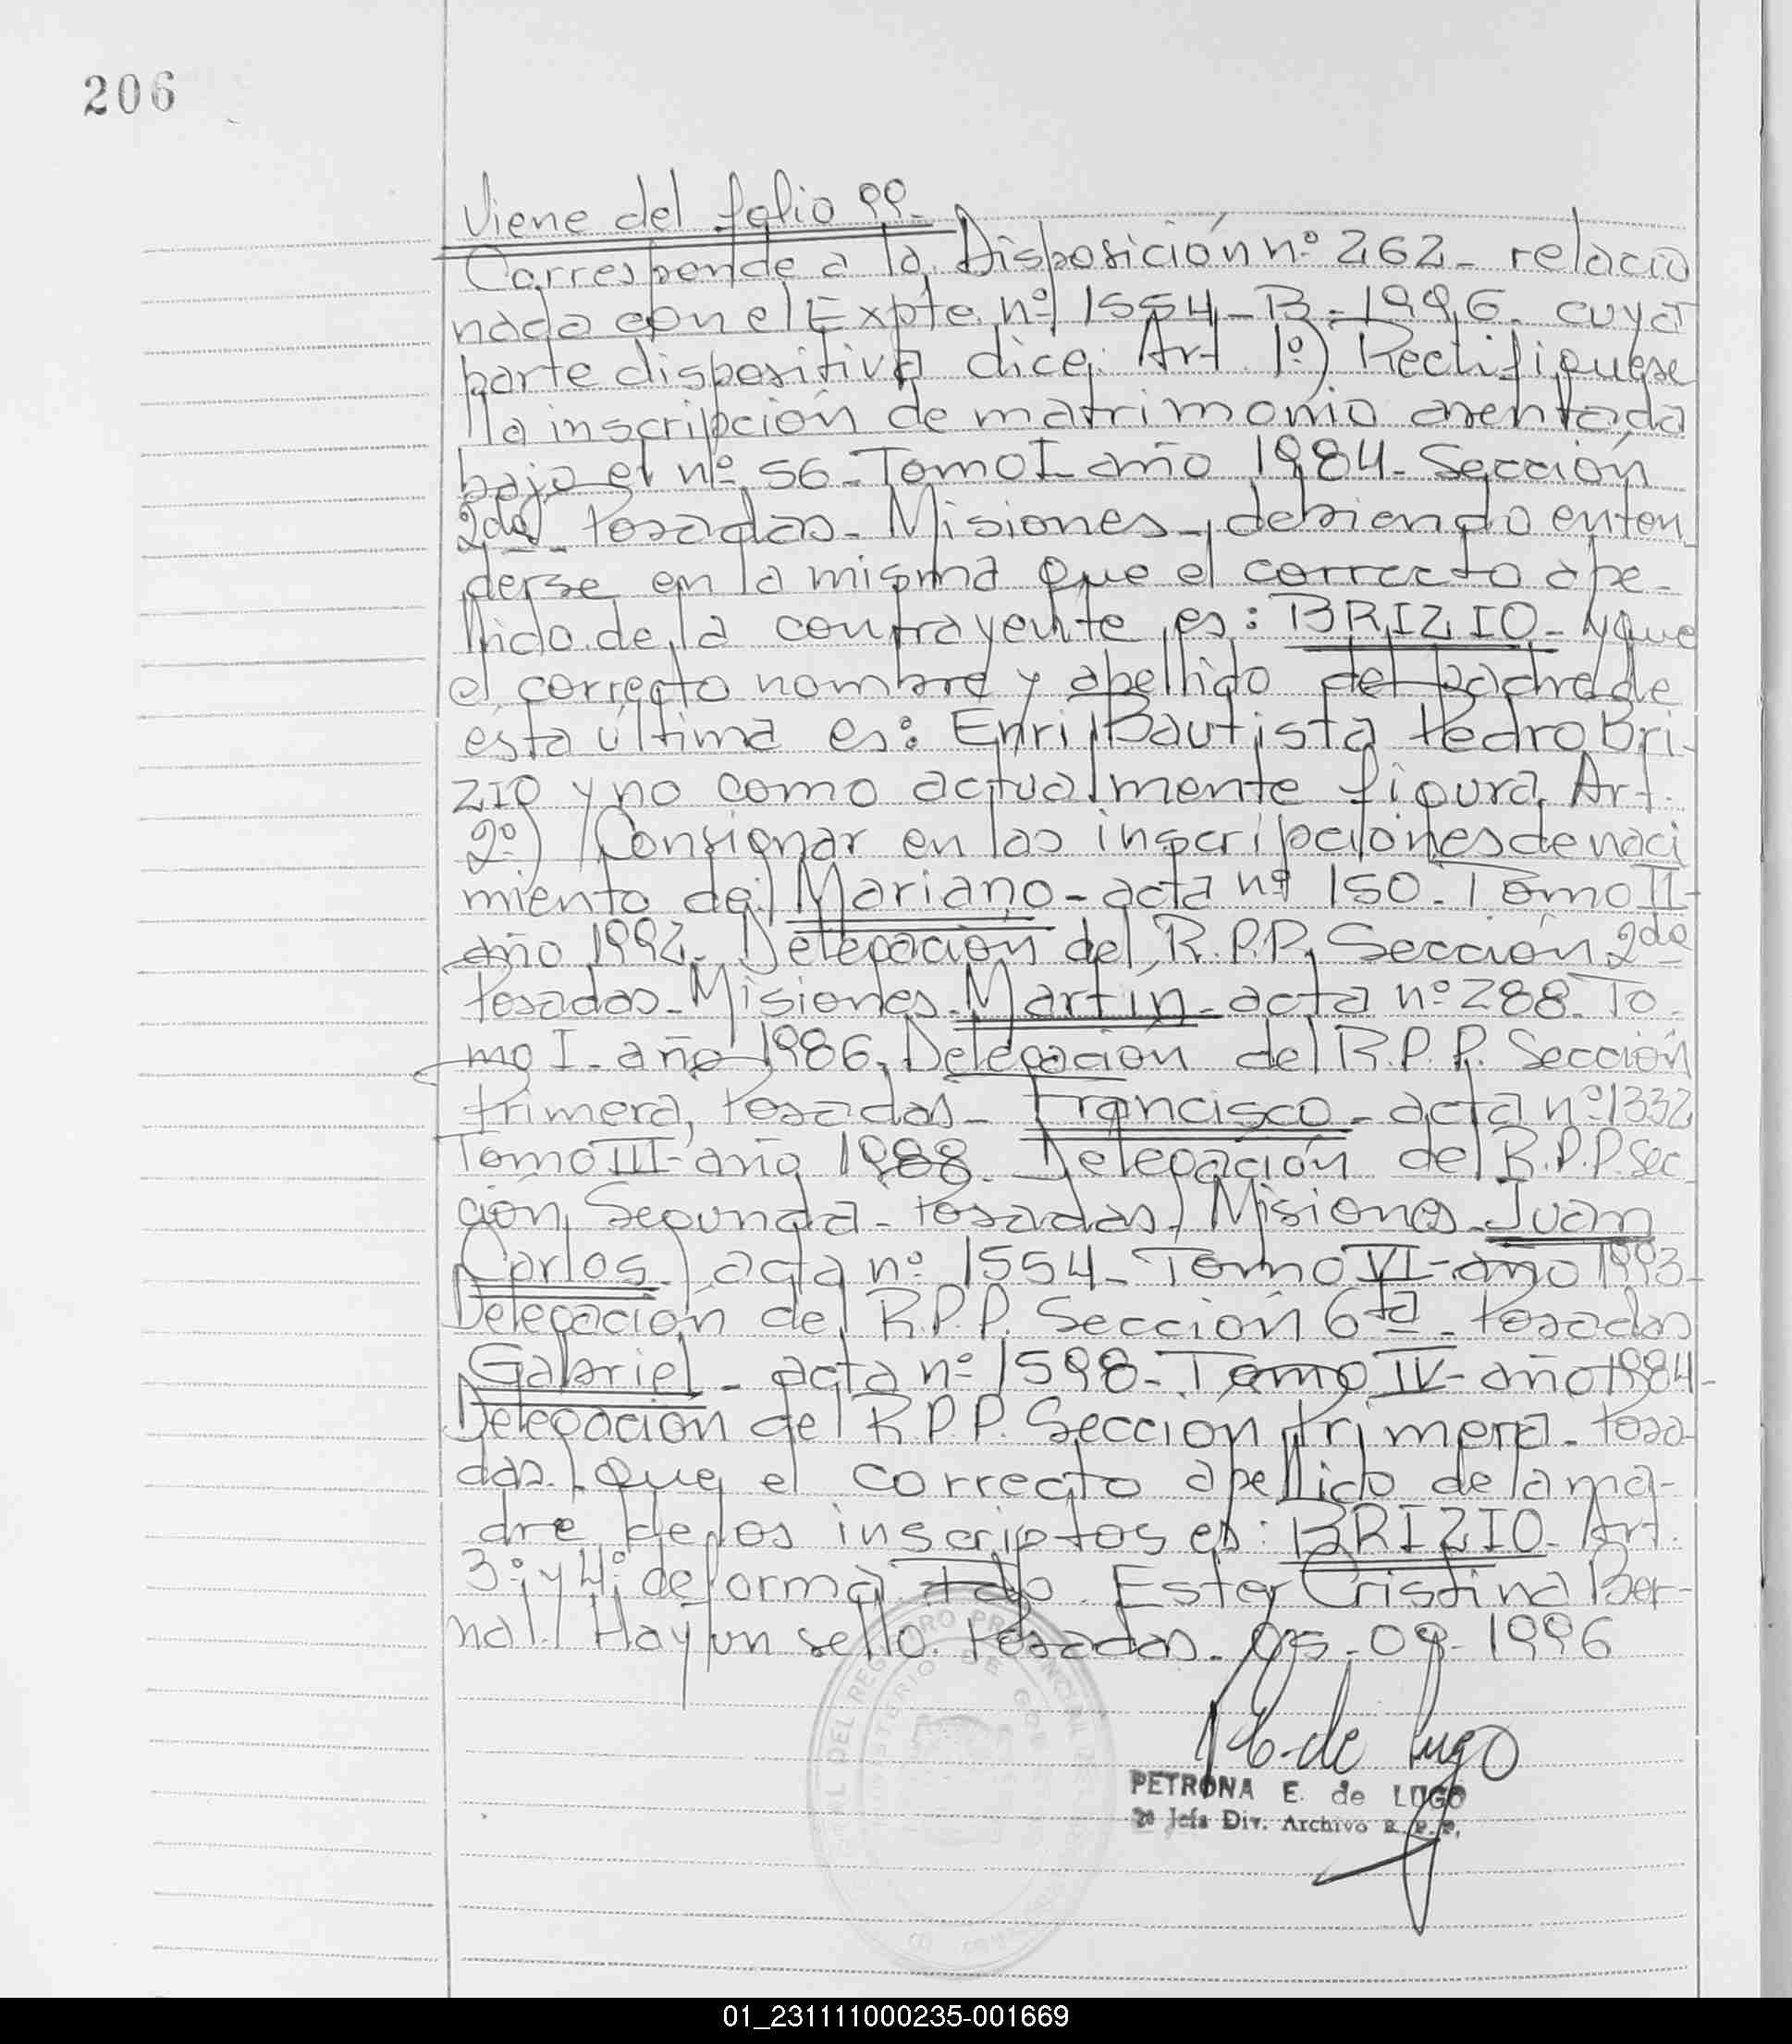 206
Viene del folio 99-
Corresponde a la Disposición nº 262- relacio
nada con el Expte. nº 1554-B-1996- cuya
parte dispositiva dice: Art. 1º) Rectifiquese
la inscripción de matrimonio asentada
bajo el nº 56- Tomo I- año 1984- Sección
2da- Posadas- Misiones-, debiendo enten
derse en la misma que el correcto ape-
llido de la contrayente es: BRIZIO- y que
el correcto nombre y apellido del padre de
esta última es: Enri Bautista Pedro Bri-
ZIO y no como actualmente figura. Art.
2º) Consignar en las inscripciones de naci
miento de: Mariano- acta nº 150- Tomo II-
año 1992- Delegación del R.P.P. Sección 2da
Posadas- Misiones- Martín- acta nº 288- To-
mo I- año 1986, Delegación del R.P.P. Sección
Primera, Posadas- Francisco- acta nº 1332
Tomo III- año 1988- Delegación del R.P.P. Sec
ción Segunda- Posadas- Misiones- Juan
Carlos- acta nº 1554- Tomo VI- año 1993-
Delegación del R.P.P. Sección 6ta- Posadas
Gabriel- acta nº 1598- Tomo IV- año 1984-
Delegación del R.P.P. Sección Primera- Posa-
das- que el correcto apellido de la ma-
dre de los inscriptos es: BRIZIO- Art.
3º y 4º de forma fdo. Ester Cristina Ber-
nal. Hay un sello. Posadas- 05-09-1996
P. E. de Lugo
PETRONA E. de LUGO
2º Jefa Div. Archivo R. P. P.
01_231111000235-001669